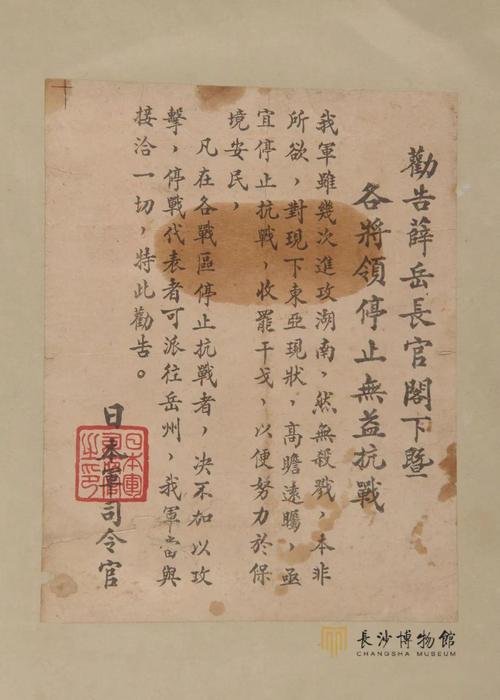 勸告薛岳長官閣下暨
各將領停止無益抗戰
我軍雖幾次進攻湖南，然無殺戮，本非
所欲，對現下東亞現狀，高瞻遠矚，亟
宜停止抗戰，收罷干戈，以便努力於保
境安民，
凡在各戰區停止抗戰者，決不加以攻
擊，停戰代表者可派往岳州，我軍當與
接洽一切，特此勸告。
日本軍司令官
長沙博物館
CHANGSHA MUSEUM